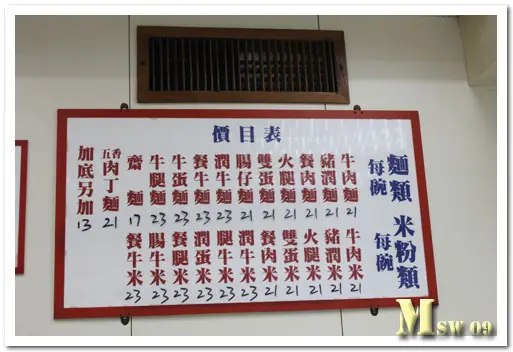 價目表
麵類 每碗
米粉類 每碗
牛肉麵 21
豬潤麵 21
餐肉麵 21
火腿麵 21
雙蛋麵 21
腸仔麵 21
潤牛麵 23
餐牛麵 23
牛蛋麵 23
牛腿麵 23
齋麵 17
五香肉丁麵 21
加底另加 13
牛肉米 21
豬潤米 21
火腿米 21
雙蛋米 21
餐肉米 21
潤牛米 23
腿牛米 23
潤蛋米 23
餐腿米 23
腸牛米 23
餐牛米 23
Msw 09